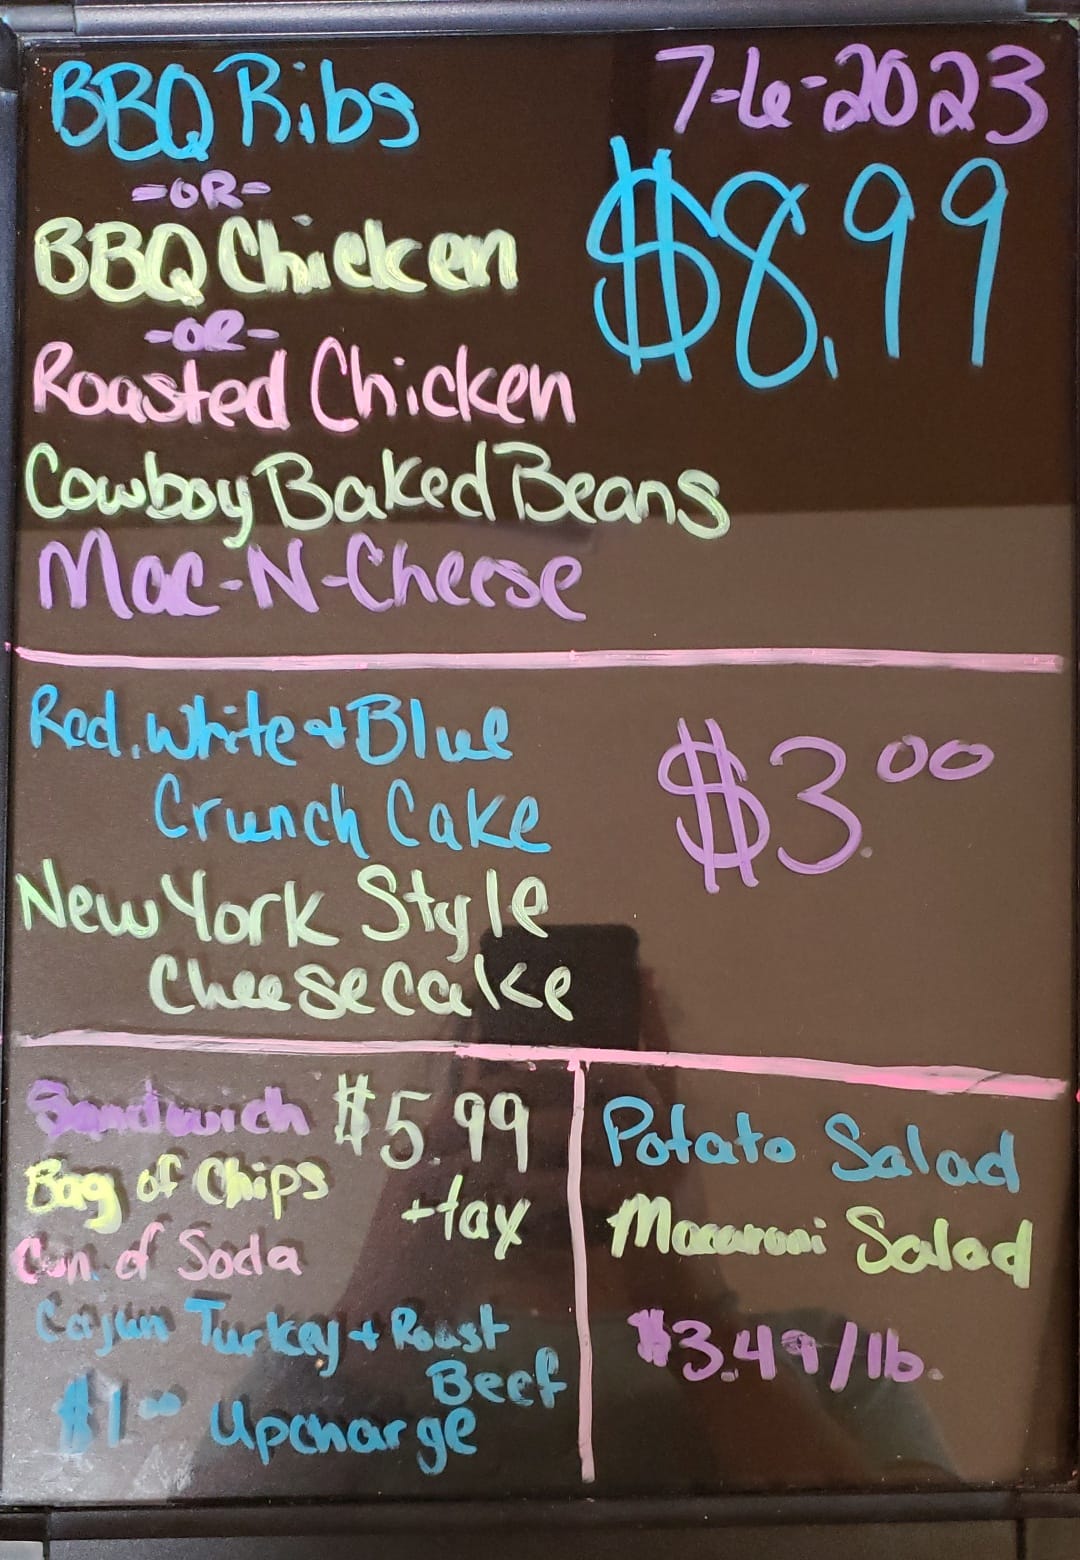 7-6-2023
BBQ Ribs
-OR-
BBQ Chicken
-OR-
Roasted Chicken
$8.99
Cowboy Baked Beans
Mac-N-Cheese
Red, White & Blue
Crunch Cake
New York Style
Cheesecake
$3.00
Sandwich $5.99
Bag of Chips +tax
Can of Soda
Cajun Turkey + Roast
Beef
$1.00 Upcharge
Potato Salad
Macaroni Salad
$3.49/lb.